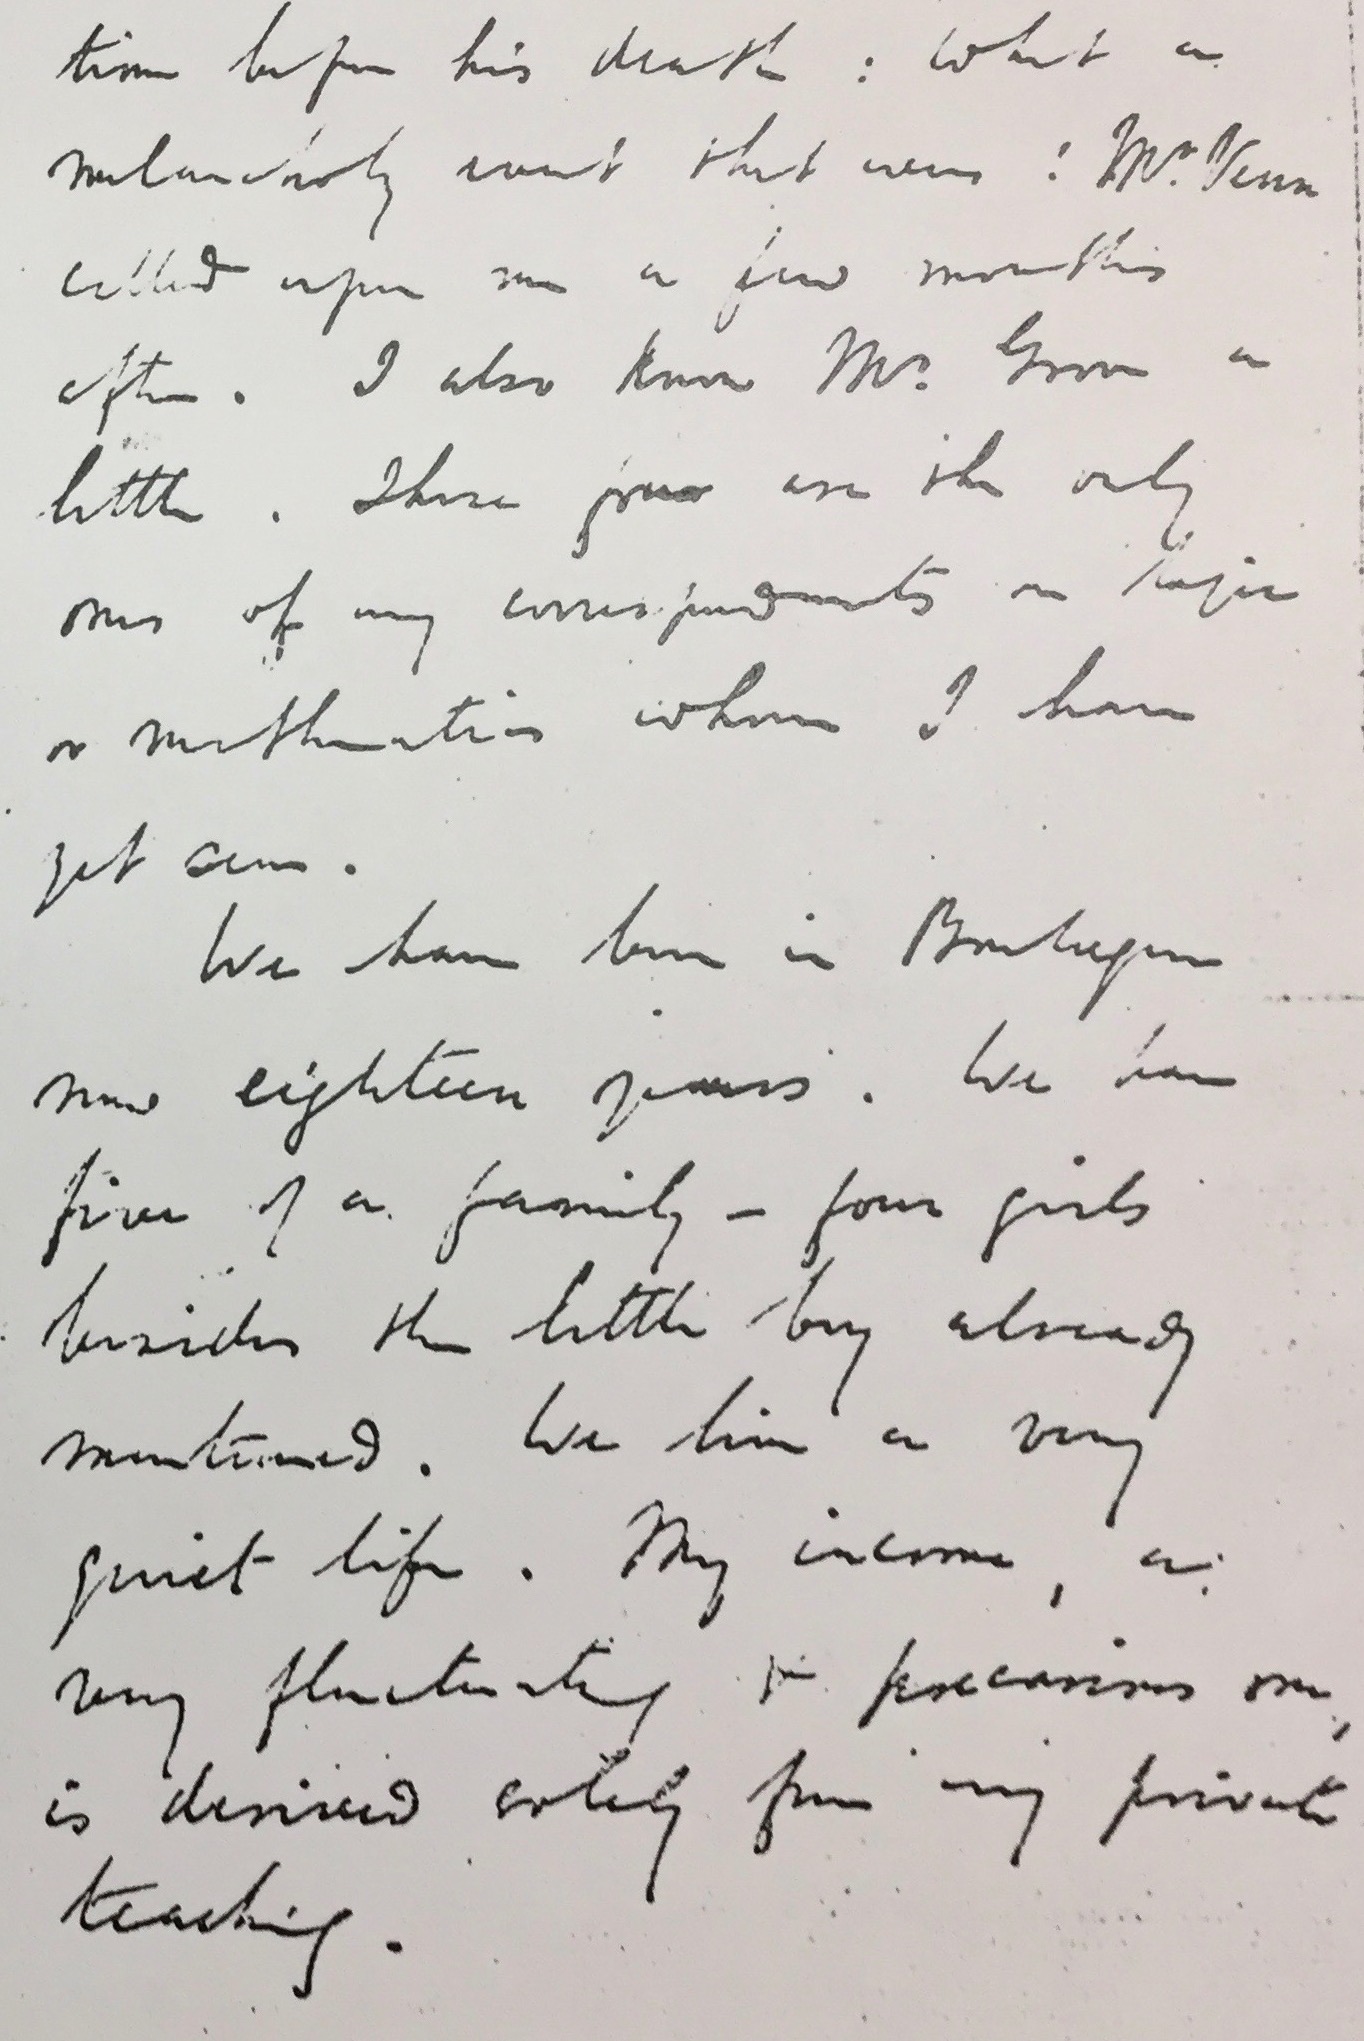 time before his death: what a
melancholy event that was! Mr. Venn
called upon me a few months
after. I also know Mr. Grove a
little. These four are the only
ones of my correspondents on logic
or mathematics whom I have
yet seen.
We have been in Boulogne
now eighteen years. We have
five of a family – four girls
besides the little boy already
mentioned. We live a very
quiet life. My income, a
very fluctuating & precarious one,
is derived solely from my private
teaching.